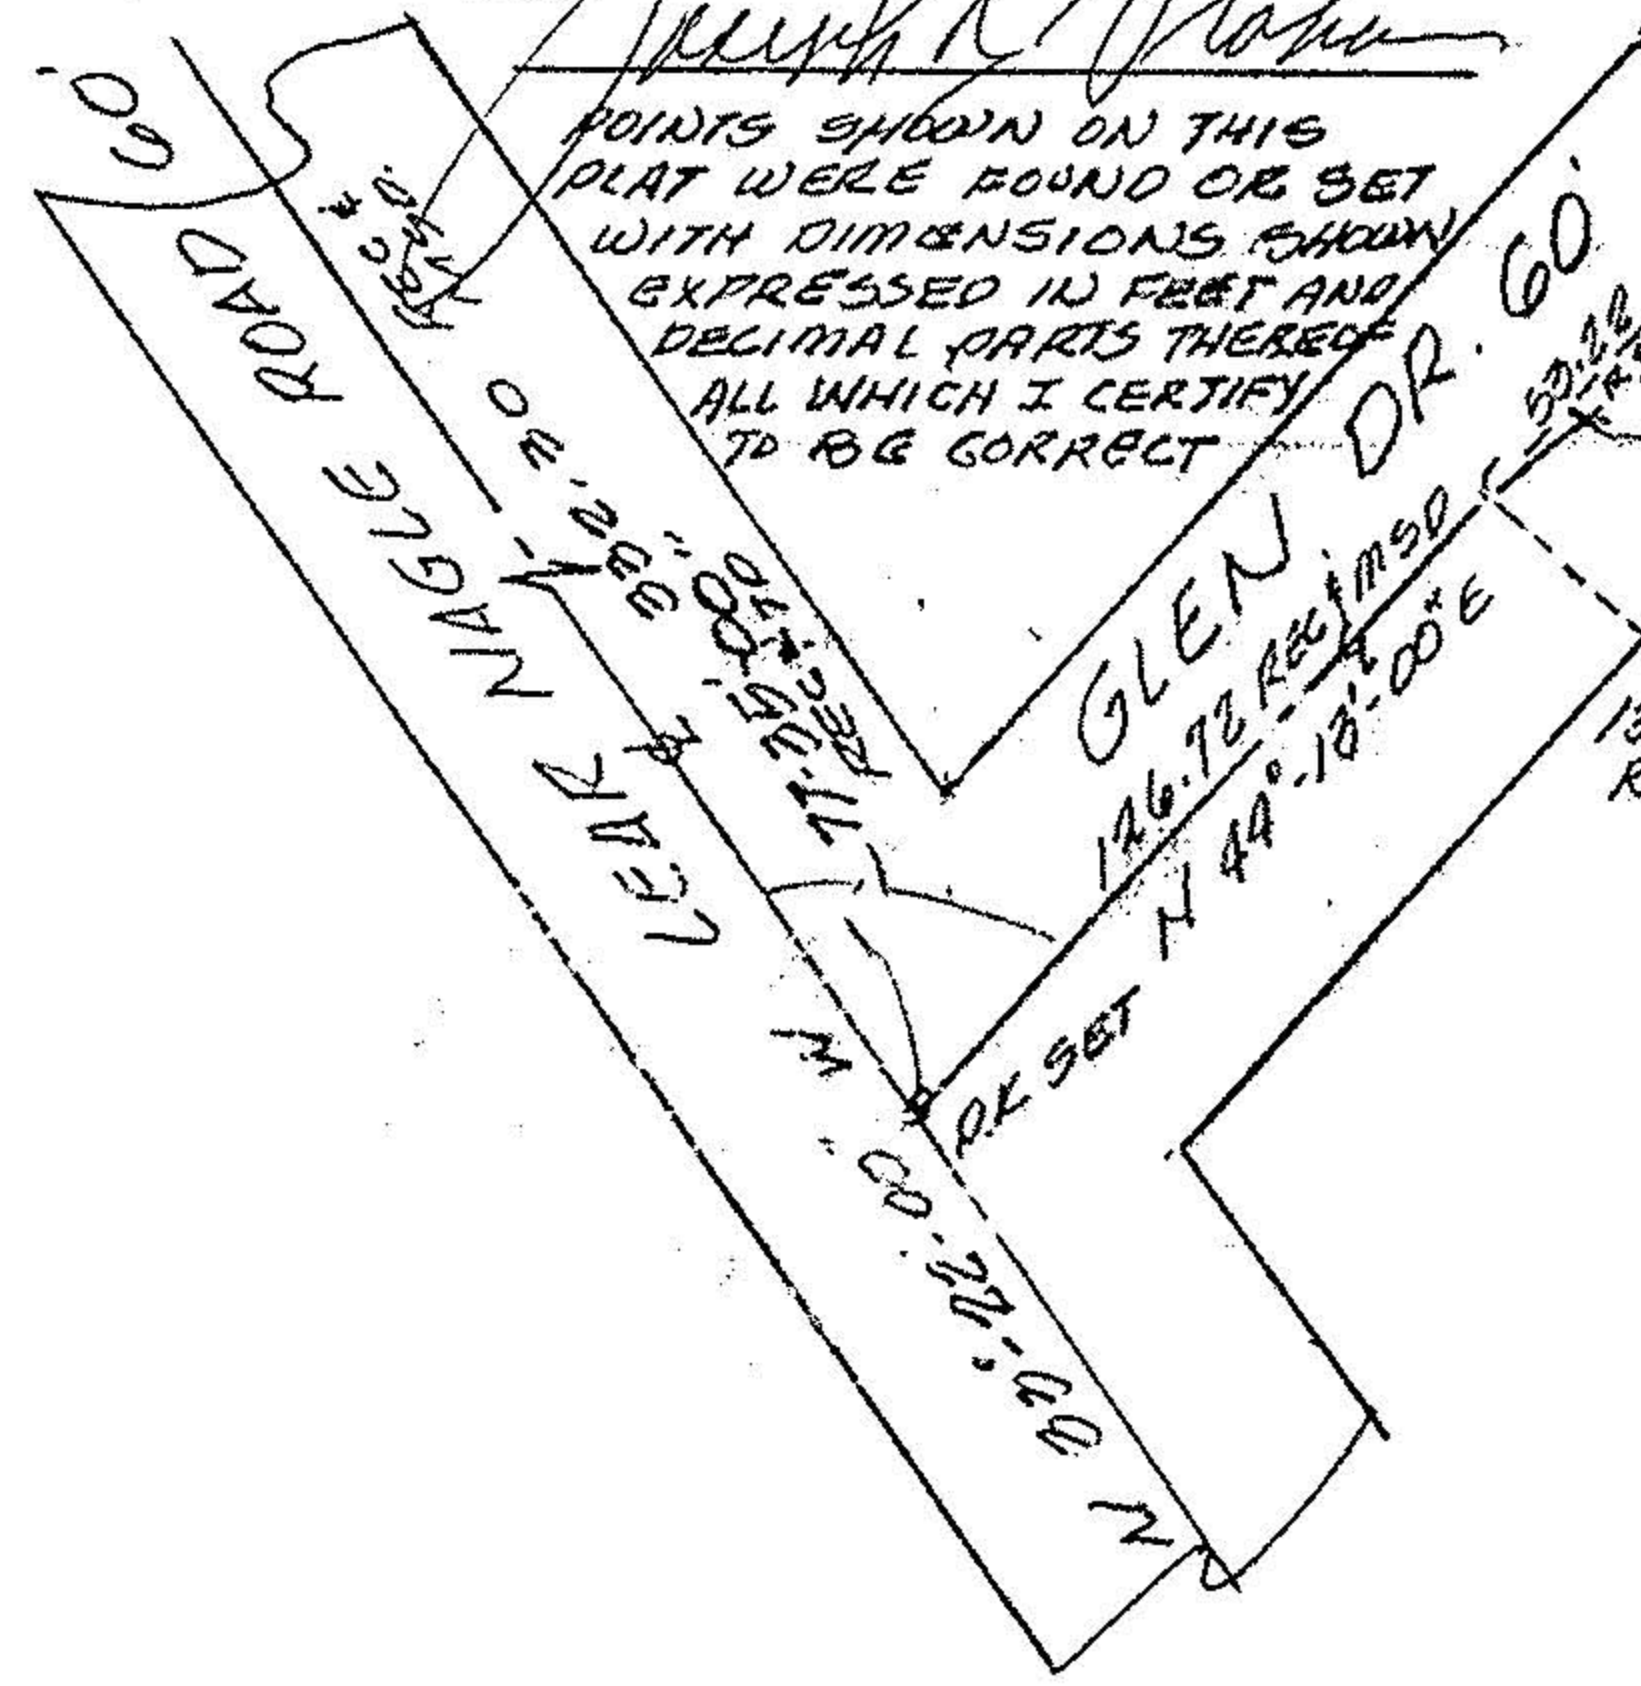 Joseph R
POINTS SHOWN ON THIS
PLAT WERE FOUND OR SET
WITH DIMENSIONS SHOWN
EXPRESSED IN FEET AND
DECIMAL PARTS THEREOF
ALL WHICH I CERTIFY
TO BE CORRECT
60'
LEAR NAGLE ROAD
REC &
332.30
REC. &
GLEN DR. 60'
126.72 REC & MSD
N 44°-13'-00" E
P.K SET
W
N